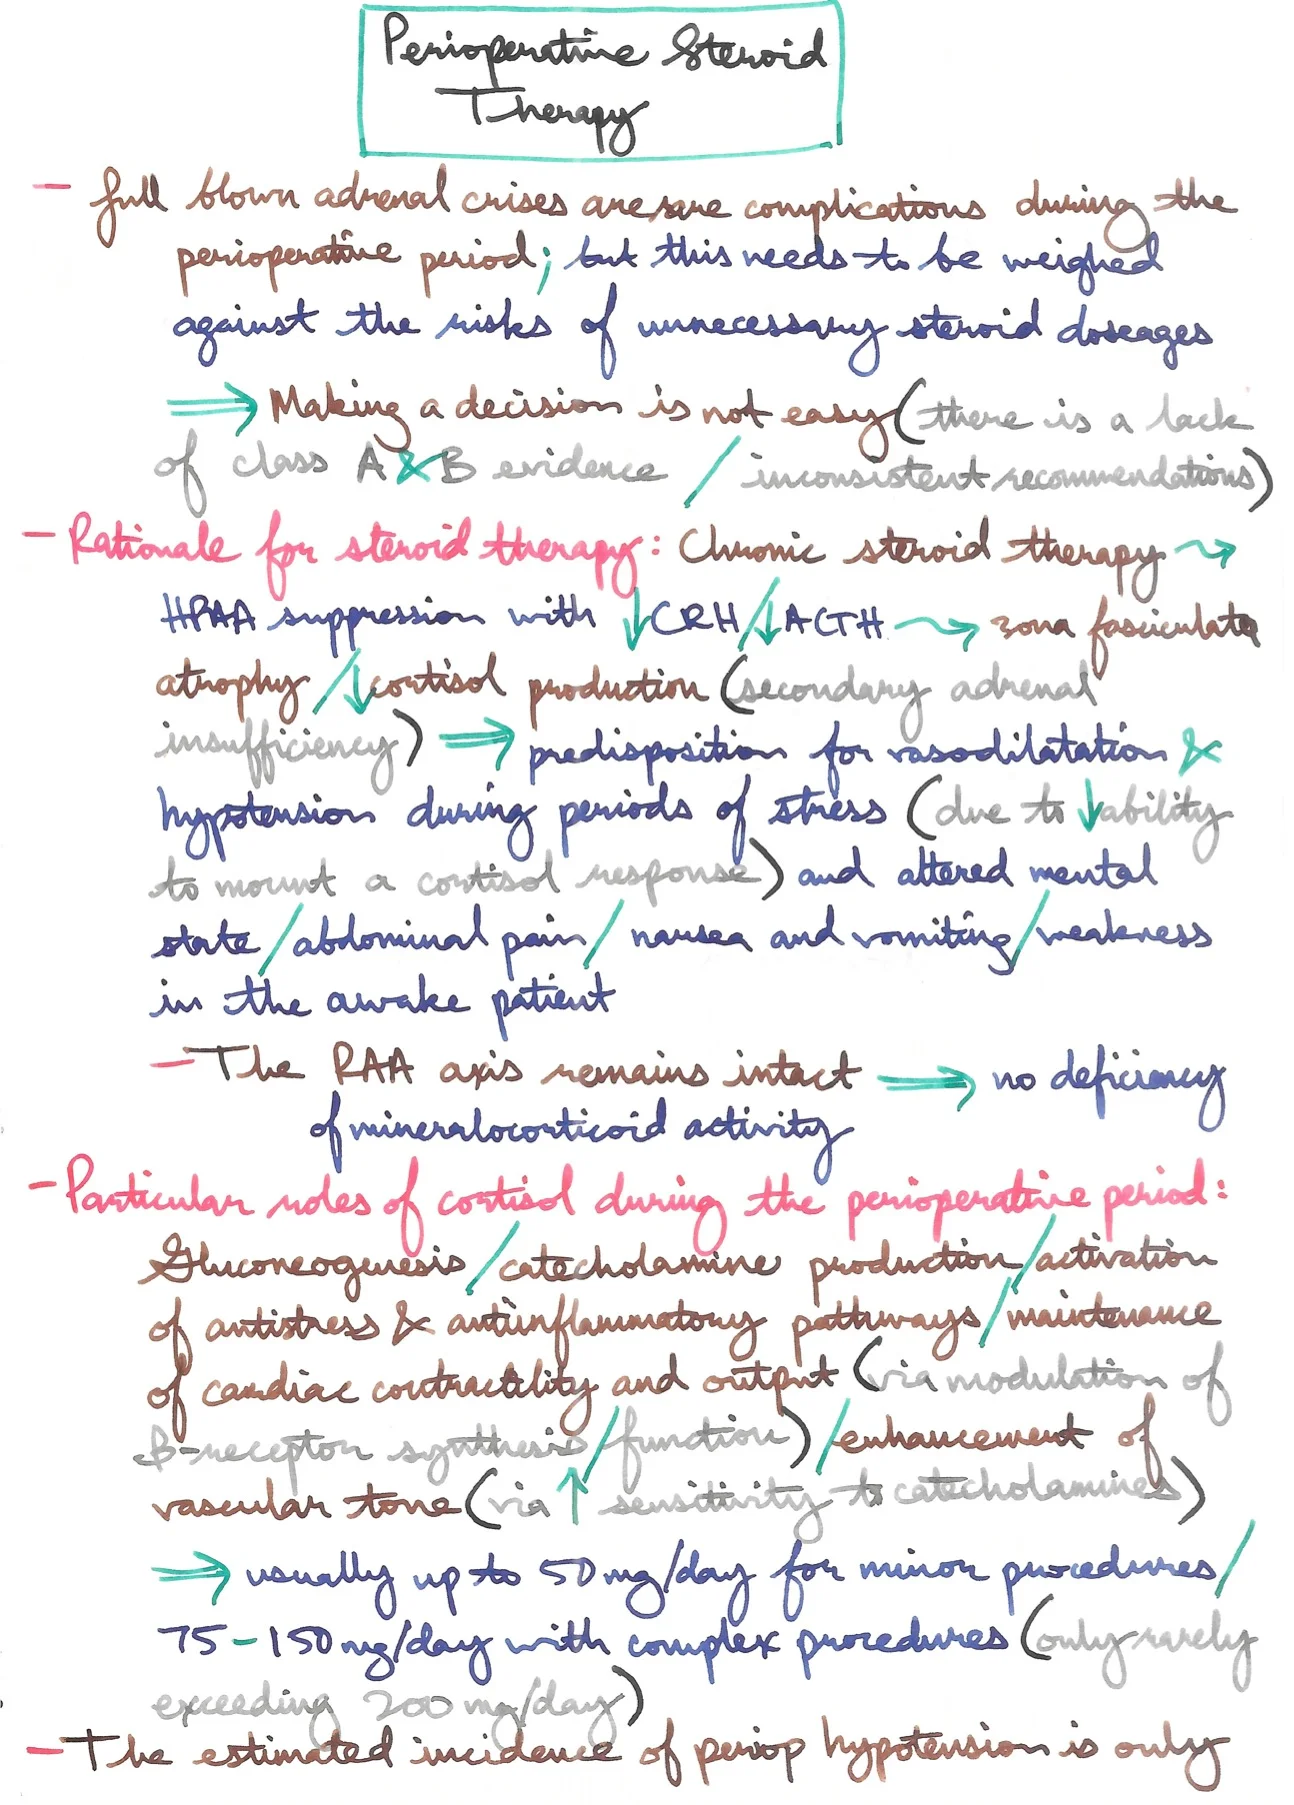 Perioperative Steroid
Therapy
- full blown adrenal crises are rare complications during the
perioperative period; but this needs to be weighed
against the risks of unnecessary steroid doseages
⇒ Making a decision is not easy (there is a lack
of class A & B evidence / inconsistent recommendations)
- Rationale for steroid therapy: Chronic steroid therapy ⇝
HPAA suppression with ↓CRH/↓ACTH ⇝ zona fasciculata
atrophy/↓cortisol production (secondary adrenal
insufficiency) ⇒ predisposition for vasodilatation &
hypotension during periods of stress (due to ↓ability
to mount a cortisol response) and altered mental
state/abdominal pain/nausea and vomiting/weakness
in the awake patient
- The RAA axis remains intact ⇒ no deficiency
of mineralocorticoid activity
- Particular roles of cortisol during the perioperative period:
Gluconeogenesis/catecholamine production/activation
of antistress & antiinflammatory pathways/maintenance
of cardiac contractility and output (via modulation of
β-receptor synthesis/function)/enhancement of
vascular tone (via ↑ sensitivity to catecholamines)
⇒ usually up to 50mg/day for minor procedures/
75-150mg/day with complex procedures (only rarely
exceeding 200mg/day)
- The estimated incidence of periop hypotension is only